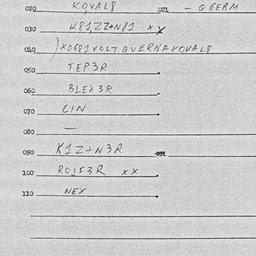 020 KOVAL8 021 - Q GERM
030 K81ZZ+N81 xx
040 )XDGP1VOLT QVERNA KOVAL8
050 TEP3R
060 BLEX3R
070 LIN
080 —
090 K1Z+N3R
100 ROJF3R xx
110 NEX